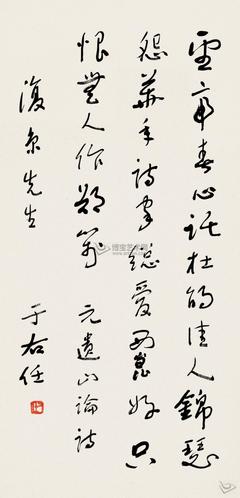 望帝春心託杜鵑佳人錦瑟
怨華年詩家總愛西崑好只
恨無人作鄭箋 元遺山論詩
復 先生 于右任
博宝艺术网